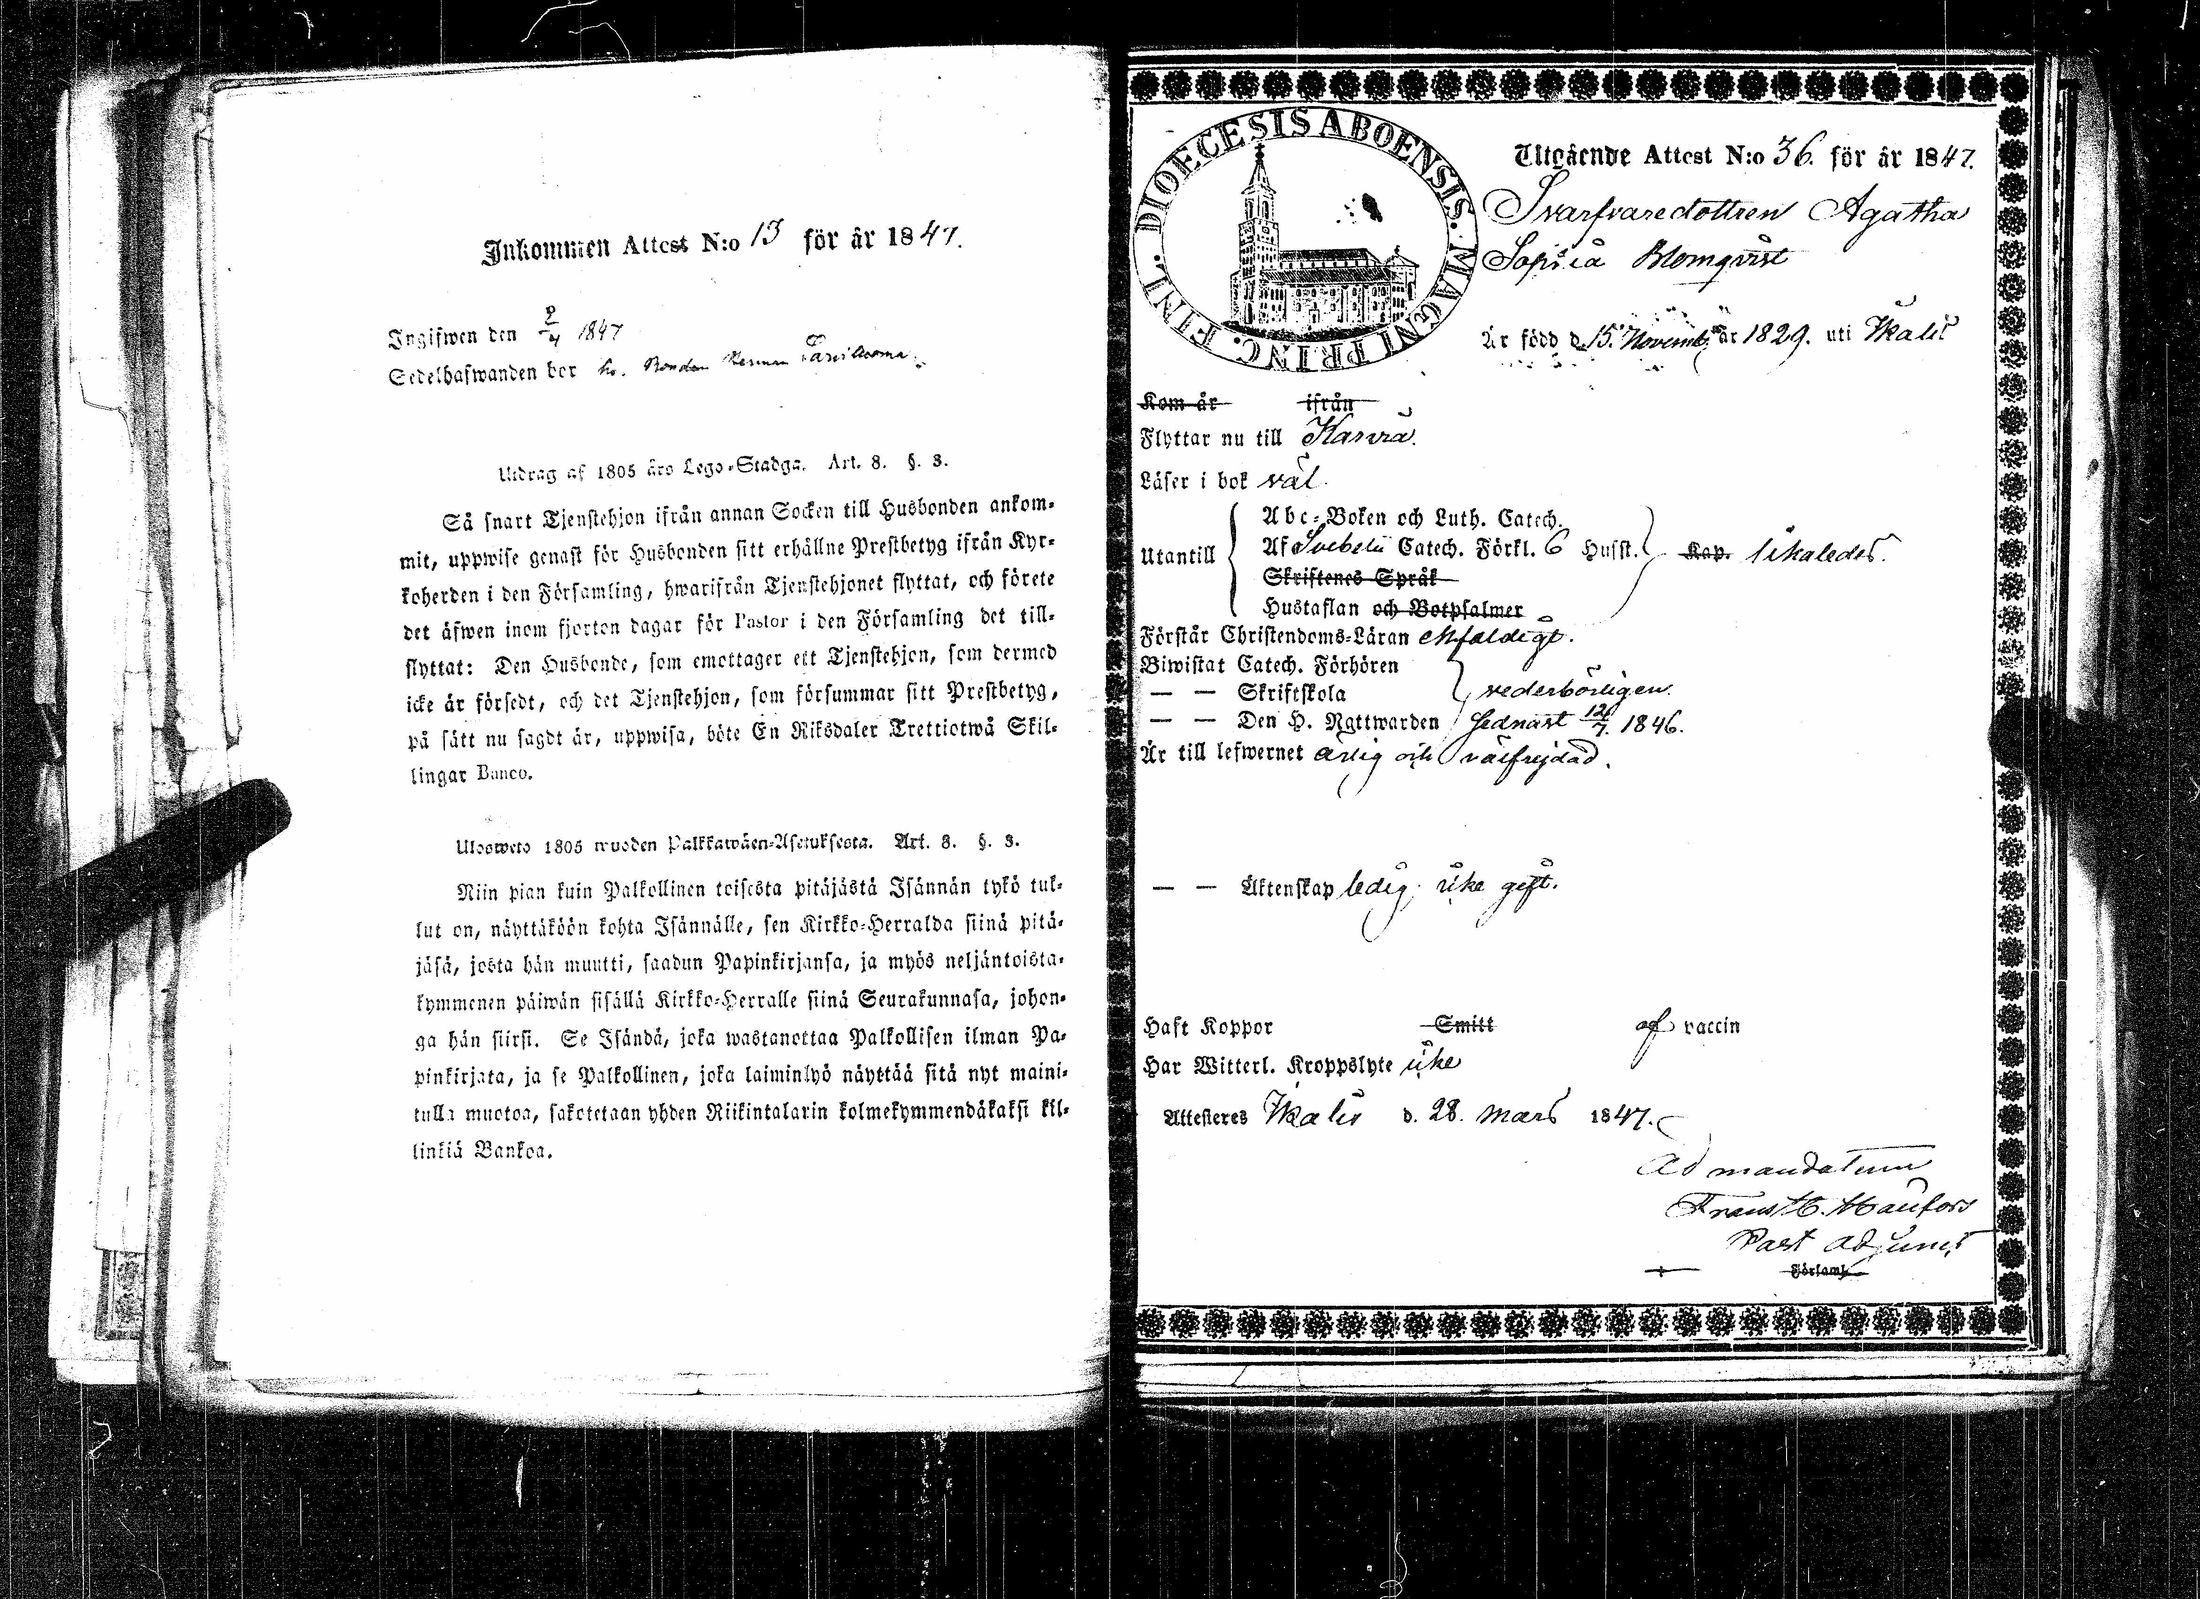 Inkommen Attest N:o 13 för år 1847.
Ingifwen den 2/4 1847
Sedelhafwanden bor hos Bonden Herman
Utdrag af 1805 års Lego-Stadga. Art. 8. §. 3.
Så snart Tjenstehjon ifrån annan Socken till Husbonden ankom-
mit, uppwise genast för Husbonden sitt erhållne Prestbetyg ifrån Kyr-
koherden i den Församling, hwarifrån Tjenstehjonet flyttat, och förete
det äfwen inom fjorton dagar för Pastor i den Församling det till-
flyttat: Den Husbonde, som emottager ett Tjenstehjon, som dermed
icke är försedt, och det Tjenstehjon, som försummar sitt Prestbetyg,
på sätt nu sagdt är, uppwisa, böte En Riksdaler Trettiotwå Skil-
lingar Banco.
Ulosweto 1805 wuoden Palkkawäen-Asetuksesta. Art. 8. §. 3.
Niin pian kuin Palkollinen toisesta pitäjästä Isännän tykö tul-
lut on, näyttäköön kohta Isännälle, sen Kirkko-Herralda siinä pitä-
jäsä, josta hän muutti, saadun Papinkirjansa, ja myös neljäntoista-
kymmenen päiwän sisällä Kirkko-Herralle siinä Seurakunnasa, johon-
ga hän siirsi. Se Isändä, joka wastanottaa Palkollisen ilman Pa-
pinkirjata, ja se Palkollinen, joka laiminlyö näyttää sitä nyt maini-
tulla muotoa, sakotetaan yhden Riikintalarin kolmekymmendäkaksi kil-
linkiä Bankoa.
DIOECESIS ABOENSIS. MAGNI PRINC. FINL.
Utgående Attest N:o 36. för år 1847.
Svarfvaredottren Agatha
Sophia Blomqvist
Är född d. 15. Novemb. år 1829. uti Ikalis
Kom år ifrån
Flyttar nu till Karvia.
Läser i bok väl.
Utantill
Abc-Boken och Luth. Catech.
Af Svebelii Catech. Förkl. 6 Hufst. Kap. likaledes.
Skriftenes Språk
Hustaflan och Botpsalmer
Förstår Christendoms-Läran enfaldigt.
Biwistat Catech. Förhören
— — Skriftskola vederbörligen.
— — Den H. Nattwarden sednast 12/7. 1846.
Är till lefwernet ärlig och välfrejdad.
— — Äktenskap ledig, icke gift.
Haft Koppor Smitt af vaccin
Har Witterl. Kroppslyte icke
Attesteres Ikalis d. 28. Mars 1847.
Ad mandatum
Frans H.
Past adjunct
Församl.